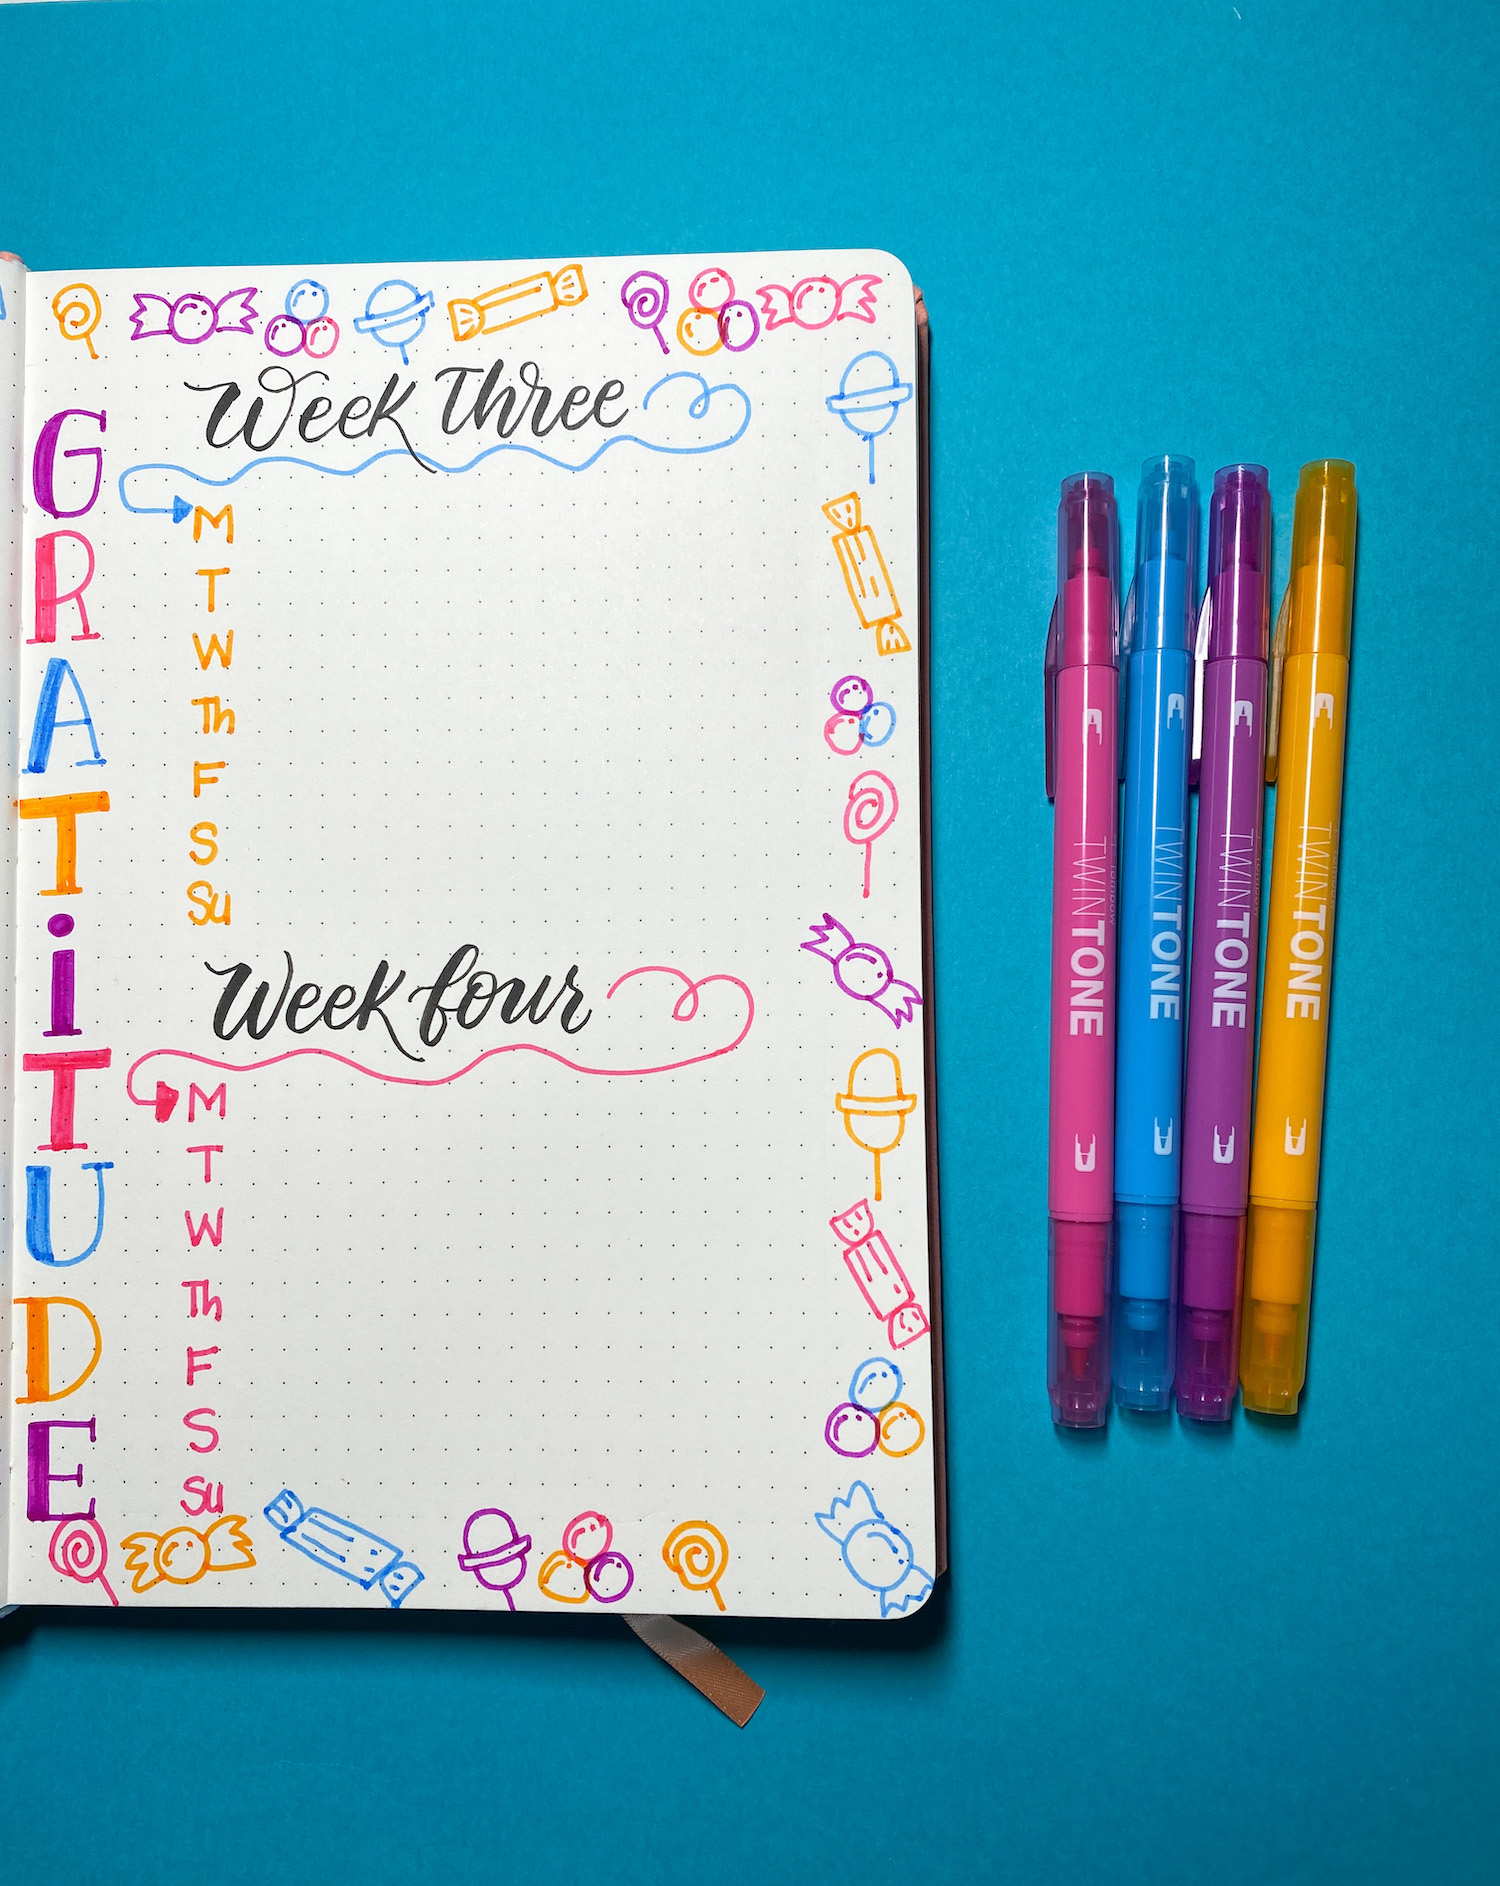 GRATiTUDE
Week Three
M
T
W
Th
F
S
Su
Week four
M
T
W
Th
F
S
Su
TWINTONE
TWINTONE
TWINTONE
TWINTONE